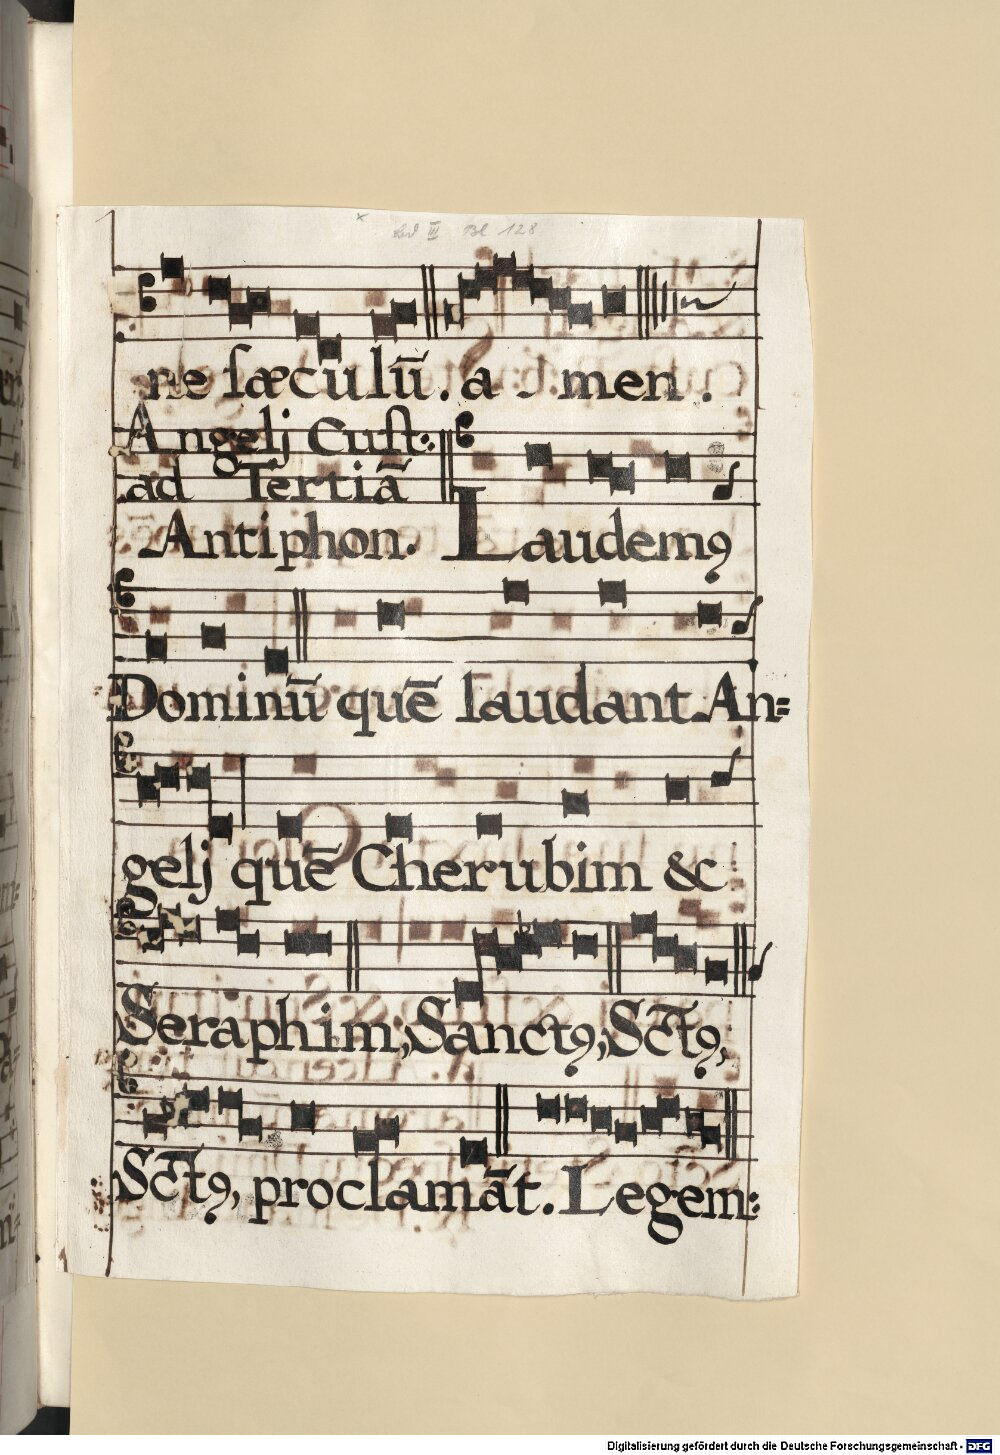 Bd III Bl 128
ne sæculū. a men.
Angelj Cust:
ad Tertiā
Antiphon. Laudemꝰ
Dominū quē laudant An=
gelj quē Cherubim &c
Seraphim; Sanctꝰ; Sc̄tꝰ,
Sc̄tꝰ, proclamāt. Legem:
Digitalisierung gefördert durch die Deutsche Forschungsgemeinschaft - DFG